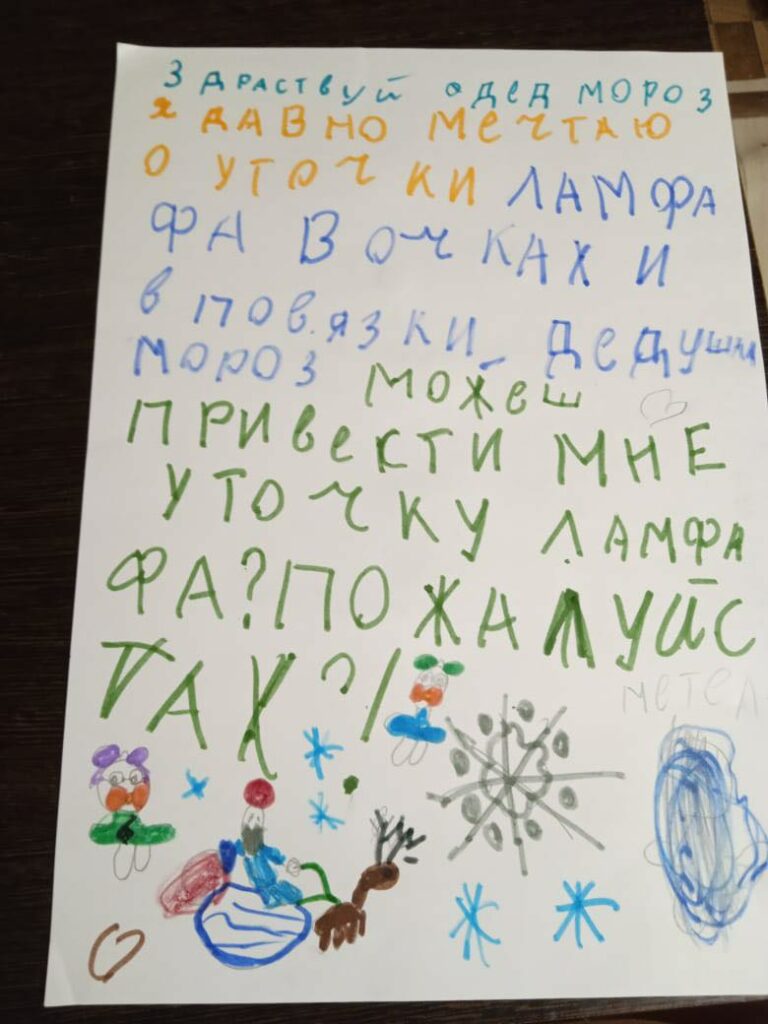 Здраствуй дед мороз
я давно мечтаю
о уточки ЛАМФА
ФА в очках и
в повязки дедушка
мороз можеш
привекти мне
уточку ЛАМФА
ФА? ПОЖАЛУЙС
ТАХ?!
метел